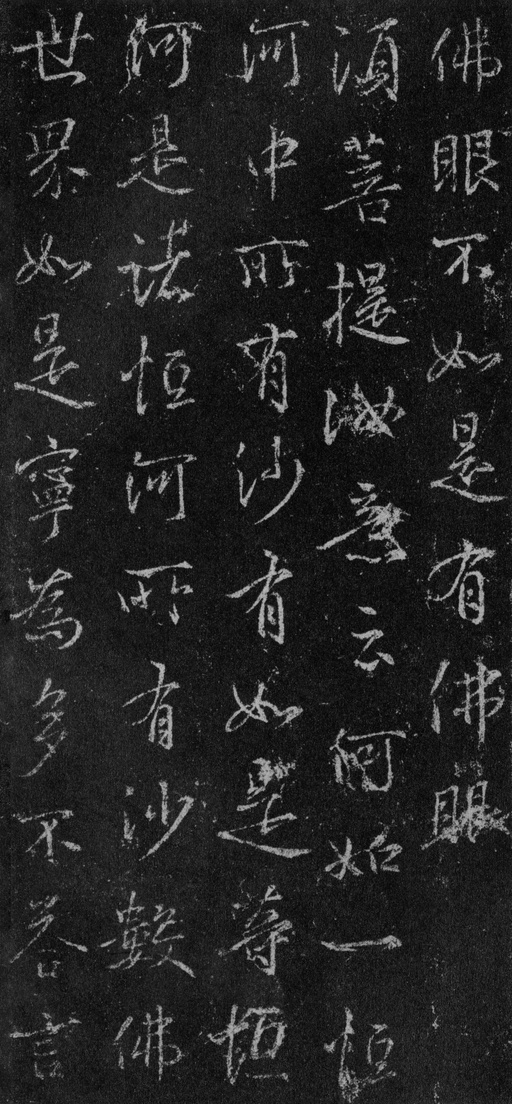 佛眼不如是有佛眼
須菩提汝意云何如一恒
河中所有沙有如是等恒
河是諸恒河所有沙數佛
世界如是寧為多不答言